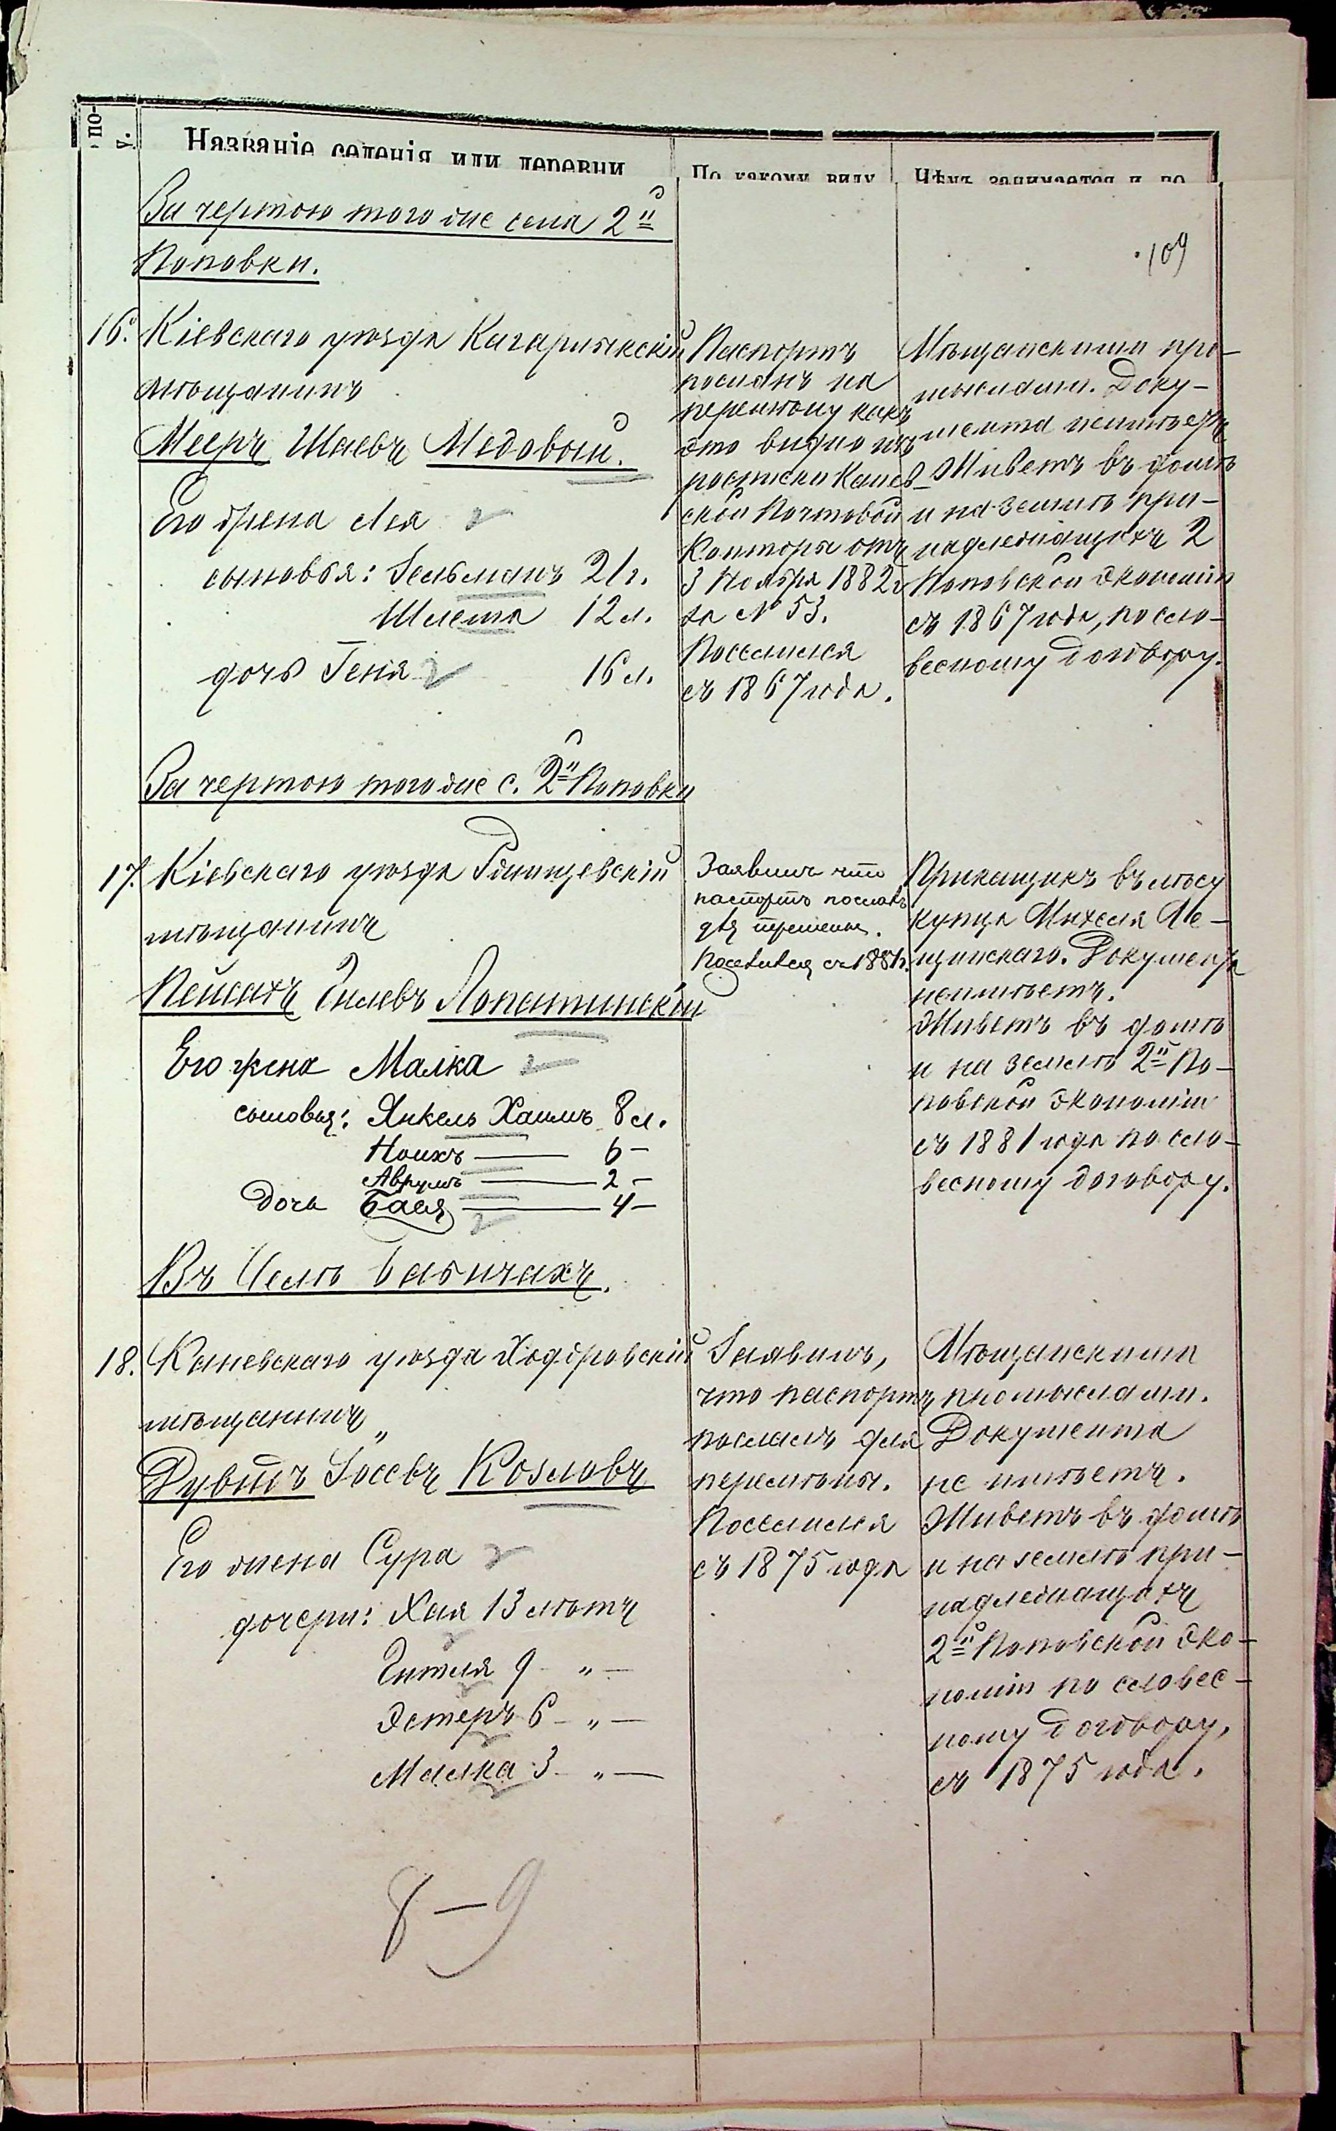 по-
у.
Названіе селенія или деревни
По какому виду
Чѣмъ занимается и по
109
За чертою того же села 2й
Поповки.
16. Кіевскаго уѣзда Кагарлыкскій
мѣщанинъ
Мееръ Шаевъ Медовый.
Его жена Лея
сыновья: Зельманъ 21 г.
Шлема 12 л.
дочь Геня 16 л.
Паспортъ
посланъ на
перемѣну какъ
это видно изъ
росписки Канев-
ской Почтовой
Конторы отъ
3 Ноября 1882 г
за № 53.
Поселился
съ 1867 года.
Мѣщанскими про-
мыслами. Доку-
мента неимѣетъ
Живетъ въ домѣ
и на землѣ при-
надлежащихъ 2
Поповской экономіи
съ 1867 года, по сло-
весному договору.
За чертою того же с. 2й Поповки
17. Кіевскаго уѣзда Ржищевскій
мѣщанинъ
Пейсахъ Гилевъ Лопатинскій
Его жена Малка
сыновья: Янкель Хаимъ 8 л.
Ноихъ 6 —
Аврумъ 2 —
Дочь Бася 4 —
Заявилъ что
паспортъ посланъ
для перемены.
Поселился съ 1881 г.
Прикащикъ въ лѣсу
купца Михеля Ле-
щинскаго. Документа
неимѣетъ.
Живетъ въ домѣ
и на землѣ 2й По-
повской экономіи
съ 1881 года по сло-
весному договору.
Въ Селѣ Бабичахъ.
18. Каневскаго уѣзда Ходоровскій
мѣщанинъ
Рувинъ Іосевъ Козловъ
Его жена Сура
дочери: Хая 13 лѣтъ
Гителя 9 — „ —
Эстеръ 6 — „ —
Малка 3 — „ —
Заявилъ,
что паспортъ
посланъ для
перемѣны.
Поселился
съ 1875 года
Мѣщанскими
промыслами.
Документа
не имѣетъ.
Живетъ въ домѣ
и на землѣ при-
надлежащихъ
2й Поповской эко-
номіи по словес-
ному договору,
съ 1875 года.
8 — 9